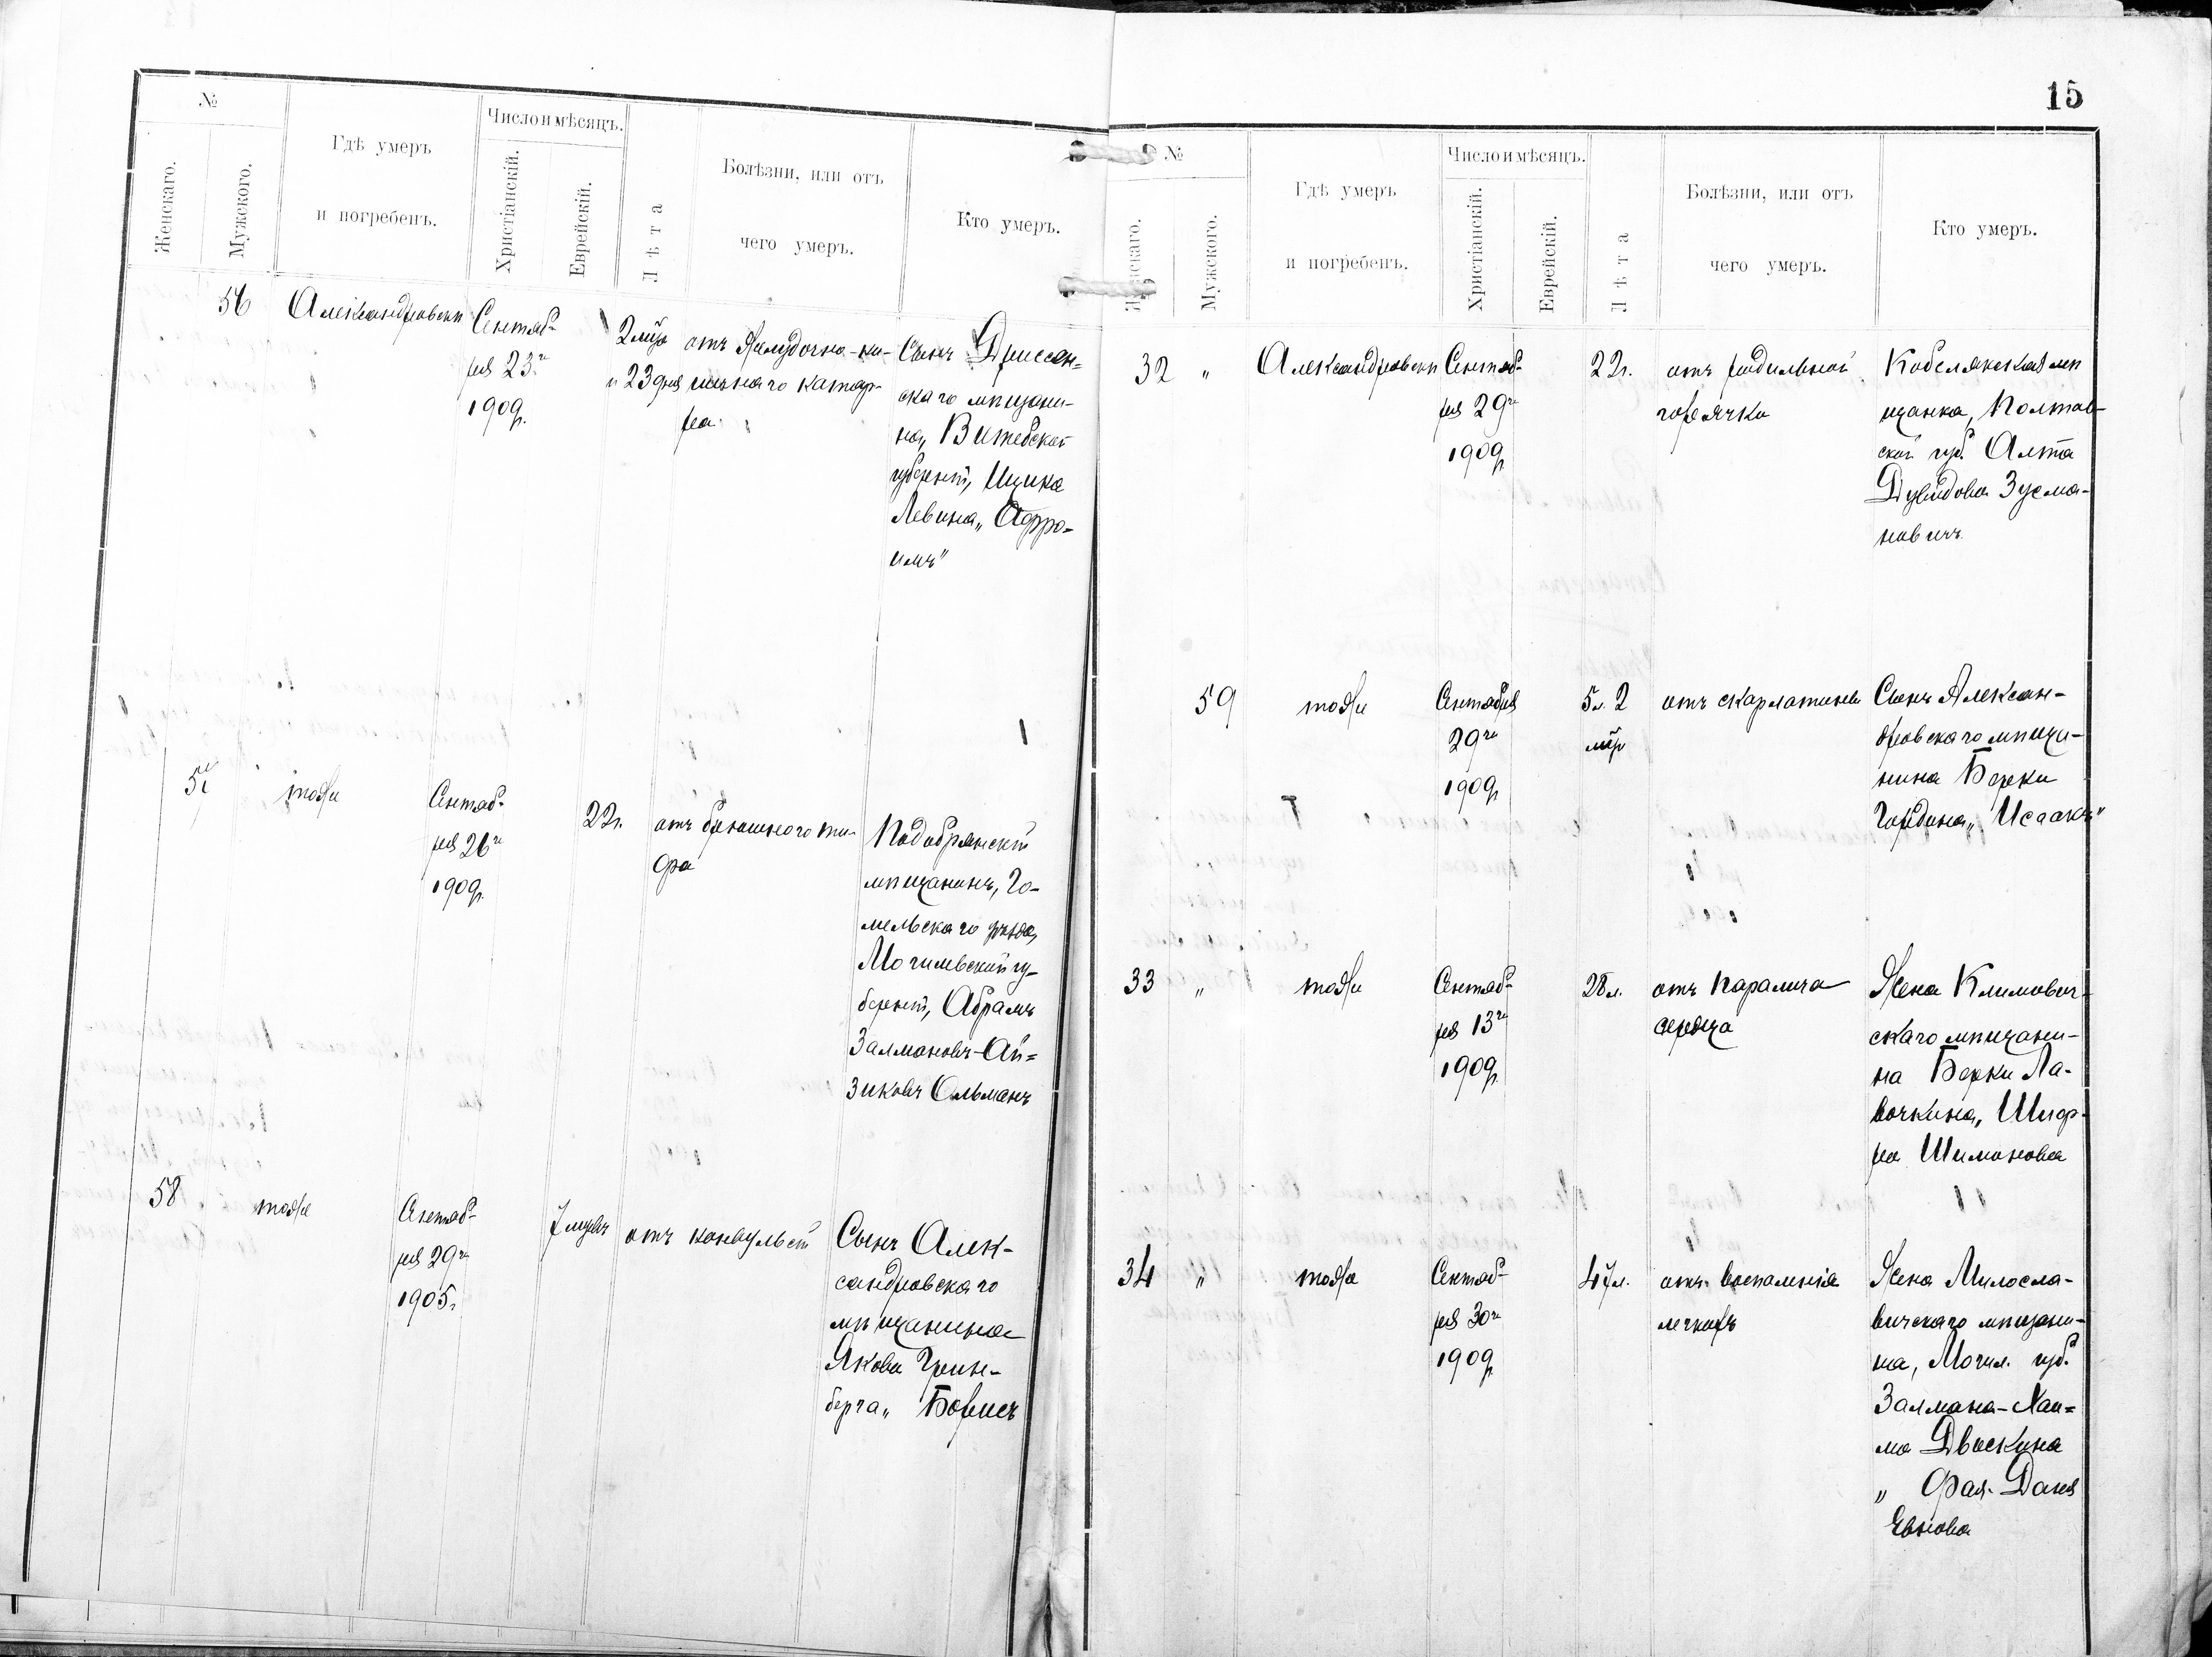 №
Женскаго.
Мужского.
Гдѣ умеръ
и погребенъ.
Число и мѣсяцъ.
Христіанскій.
Еврейскій.
Лѣта
Болѣзни, или отъ
чего умеръ.
Кто умеръ.
56
Александровскъ
Сентяб-
ря 23го
190
2 мца
и 23 дня
отъ желудочно-ки-
шечнаго катар-
ра
Сынъ Дриссен=
скаго мѣщани-
на, Витебской
губерніи, Ицика
Левина „Афро-
имъ"
57
тоже
Сентяб-
ря 26го
190
22г.
отъ брюшного ти-
фа
Подобрянскій
мѣщанинъ, Го-
мельскаго уѣзда,
Могилевской гу-
берніи, Абрамъ
Залмановъ-Ай=
зиковъ Ольманъ
58
тоже
Сентяб-
ря 29го
1905г
7 мцевъ
отъ конвульсій
Сынъ Алек-
сандровскаго
мѣщанина
Якова Грин-
берга „Борисъ
15
№
Мужского.
Гдѣ умеръ
и погребенъ.
Число и мѣсяцъ.
Христіанскій.
Еврейскій.
Лѣта
Болѣзни, или отъ
чего умеръ.
Кто умеръ.
32 "
Александровскъ
Сентяб-
ря 29го
190
22г.
отъ родильной
горячки
Кобелякская мѣ
щанка, Полтав-
ской губ. Алта
Дувидова Зусма-
новичъ
59
тоже
Сентября
29го
190
5л. 2
мѣс
отъ скарлатины
Сынъ Алексан-
дровскаго мѣща-
нина Берки
Гордона „Исаакъ"
33 "
тоже
Сентяб-
ря 13го
190
28л.
отъ паралича
сердца
Жена Климович-
скаго мѣщани-
на Берки Ла-
вочкина, Шиф-
ра Шимонова
34 "
тоже
Сентяб-
ря 30го
190
47л.
отъ воспаленія
легкихъ
Жена Милосла-
вичскаго мѣщани-
на, Могил. губ.
Залмана-Хаи=
ма Двоскина
„ Фая-Даня
Евнова